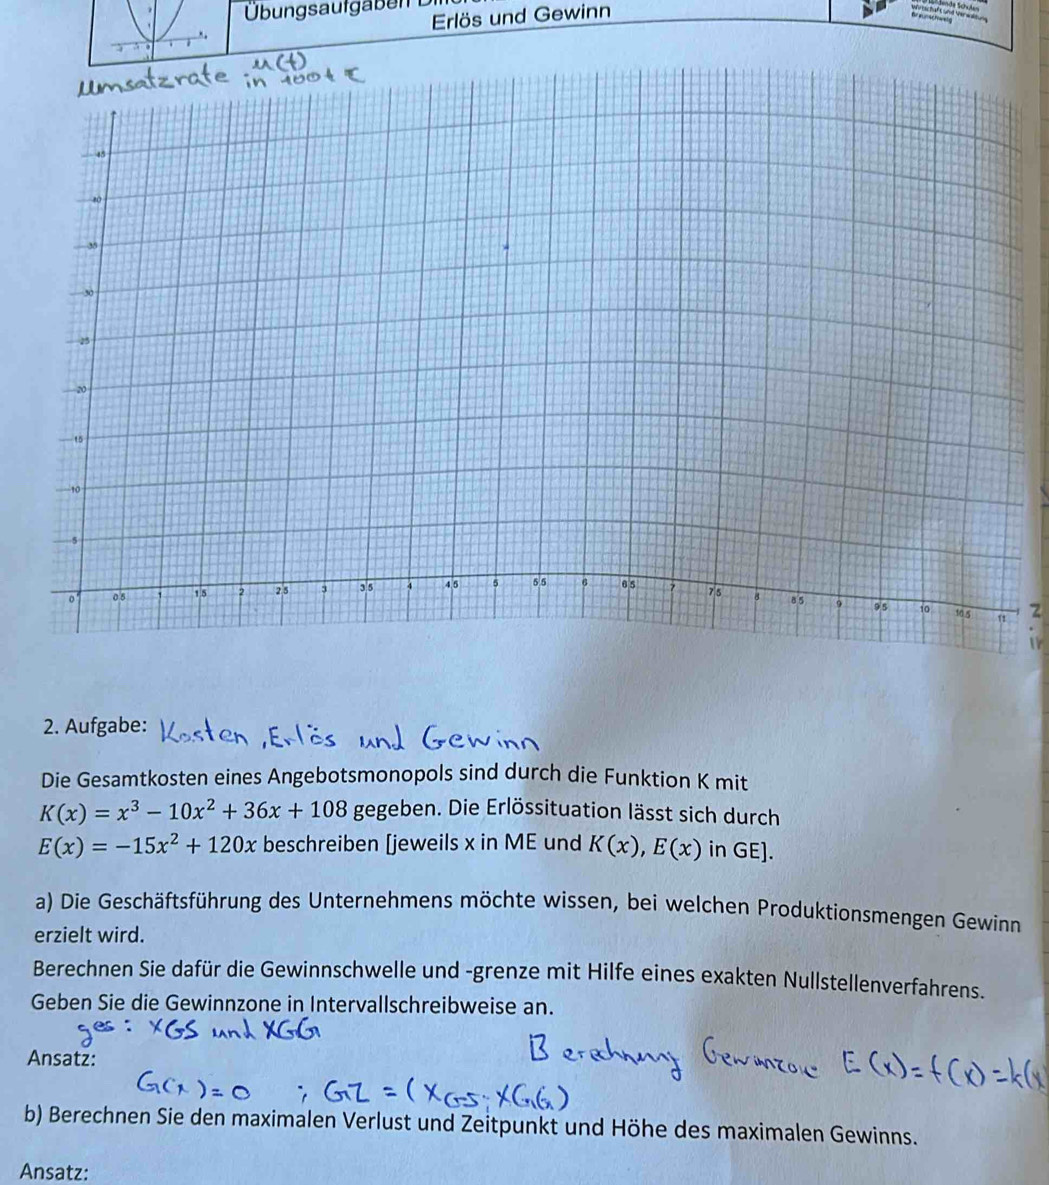 Übungsaufgaben
Erlös und Gewinn
Umsatzrate u(t) in 100t €
45
40
35
30
25
20
15
10
5
0 0.5 1 1.5 2 2.5 3 3.5 4 4.5 5 5.5 6 6.5 7 7.5 8 8.5 9 9.5 10 10.5 11
2. Aufgabe: Kosten, Erlös und Gewinn
Die Gesamtkosten eines Angebotsmonopols sind durch die Funktion K mit
K(x) = x³ − 10x² + 36x + 108 gegeben. Die Erlössituation lässt sich durch
E(x) = −15x² + 120x beschreiben [jeweils x in ME und K(x), E(x) in GE].
a) Die Geschäftsführung des Unternehmens möchte wissen, bei welchen Produktionsmengen Gewinn
erzielt wird.
Berechnen Sie dafür die Gewinnschwelle und -grenze mit Hilfe eines exakten Nullstellenverfahrens.
Geben Sie die Gewinnzone in Intervallschreibweise an.
ges: xGS und xGG
Ansatz: Berechnung Gewinnzone E(x)=f(x)=k(x
G(x)=0 ; GZ = (xGS; xGG)
b) Berechnen Sie den maximalen Verlust und Zeitpunkt und Höhe des maximalen Gewinns.
Ansatz: